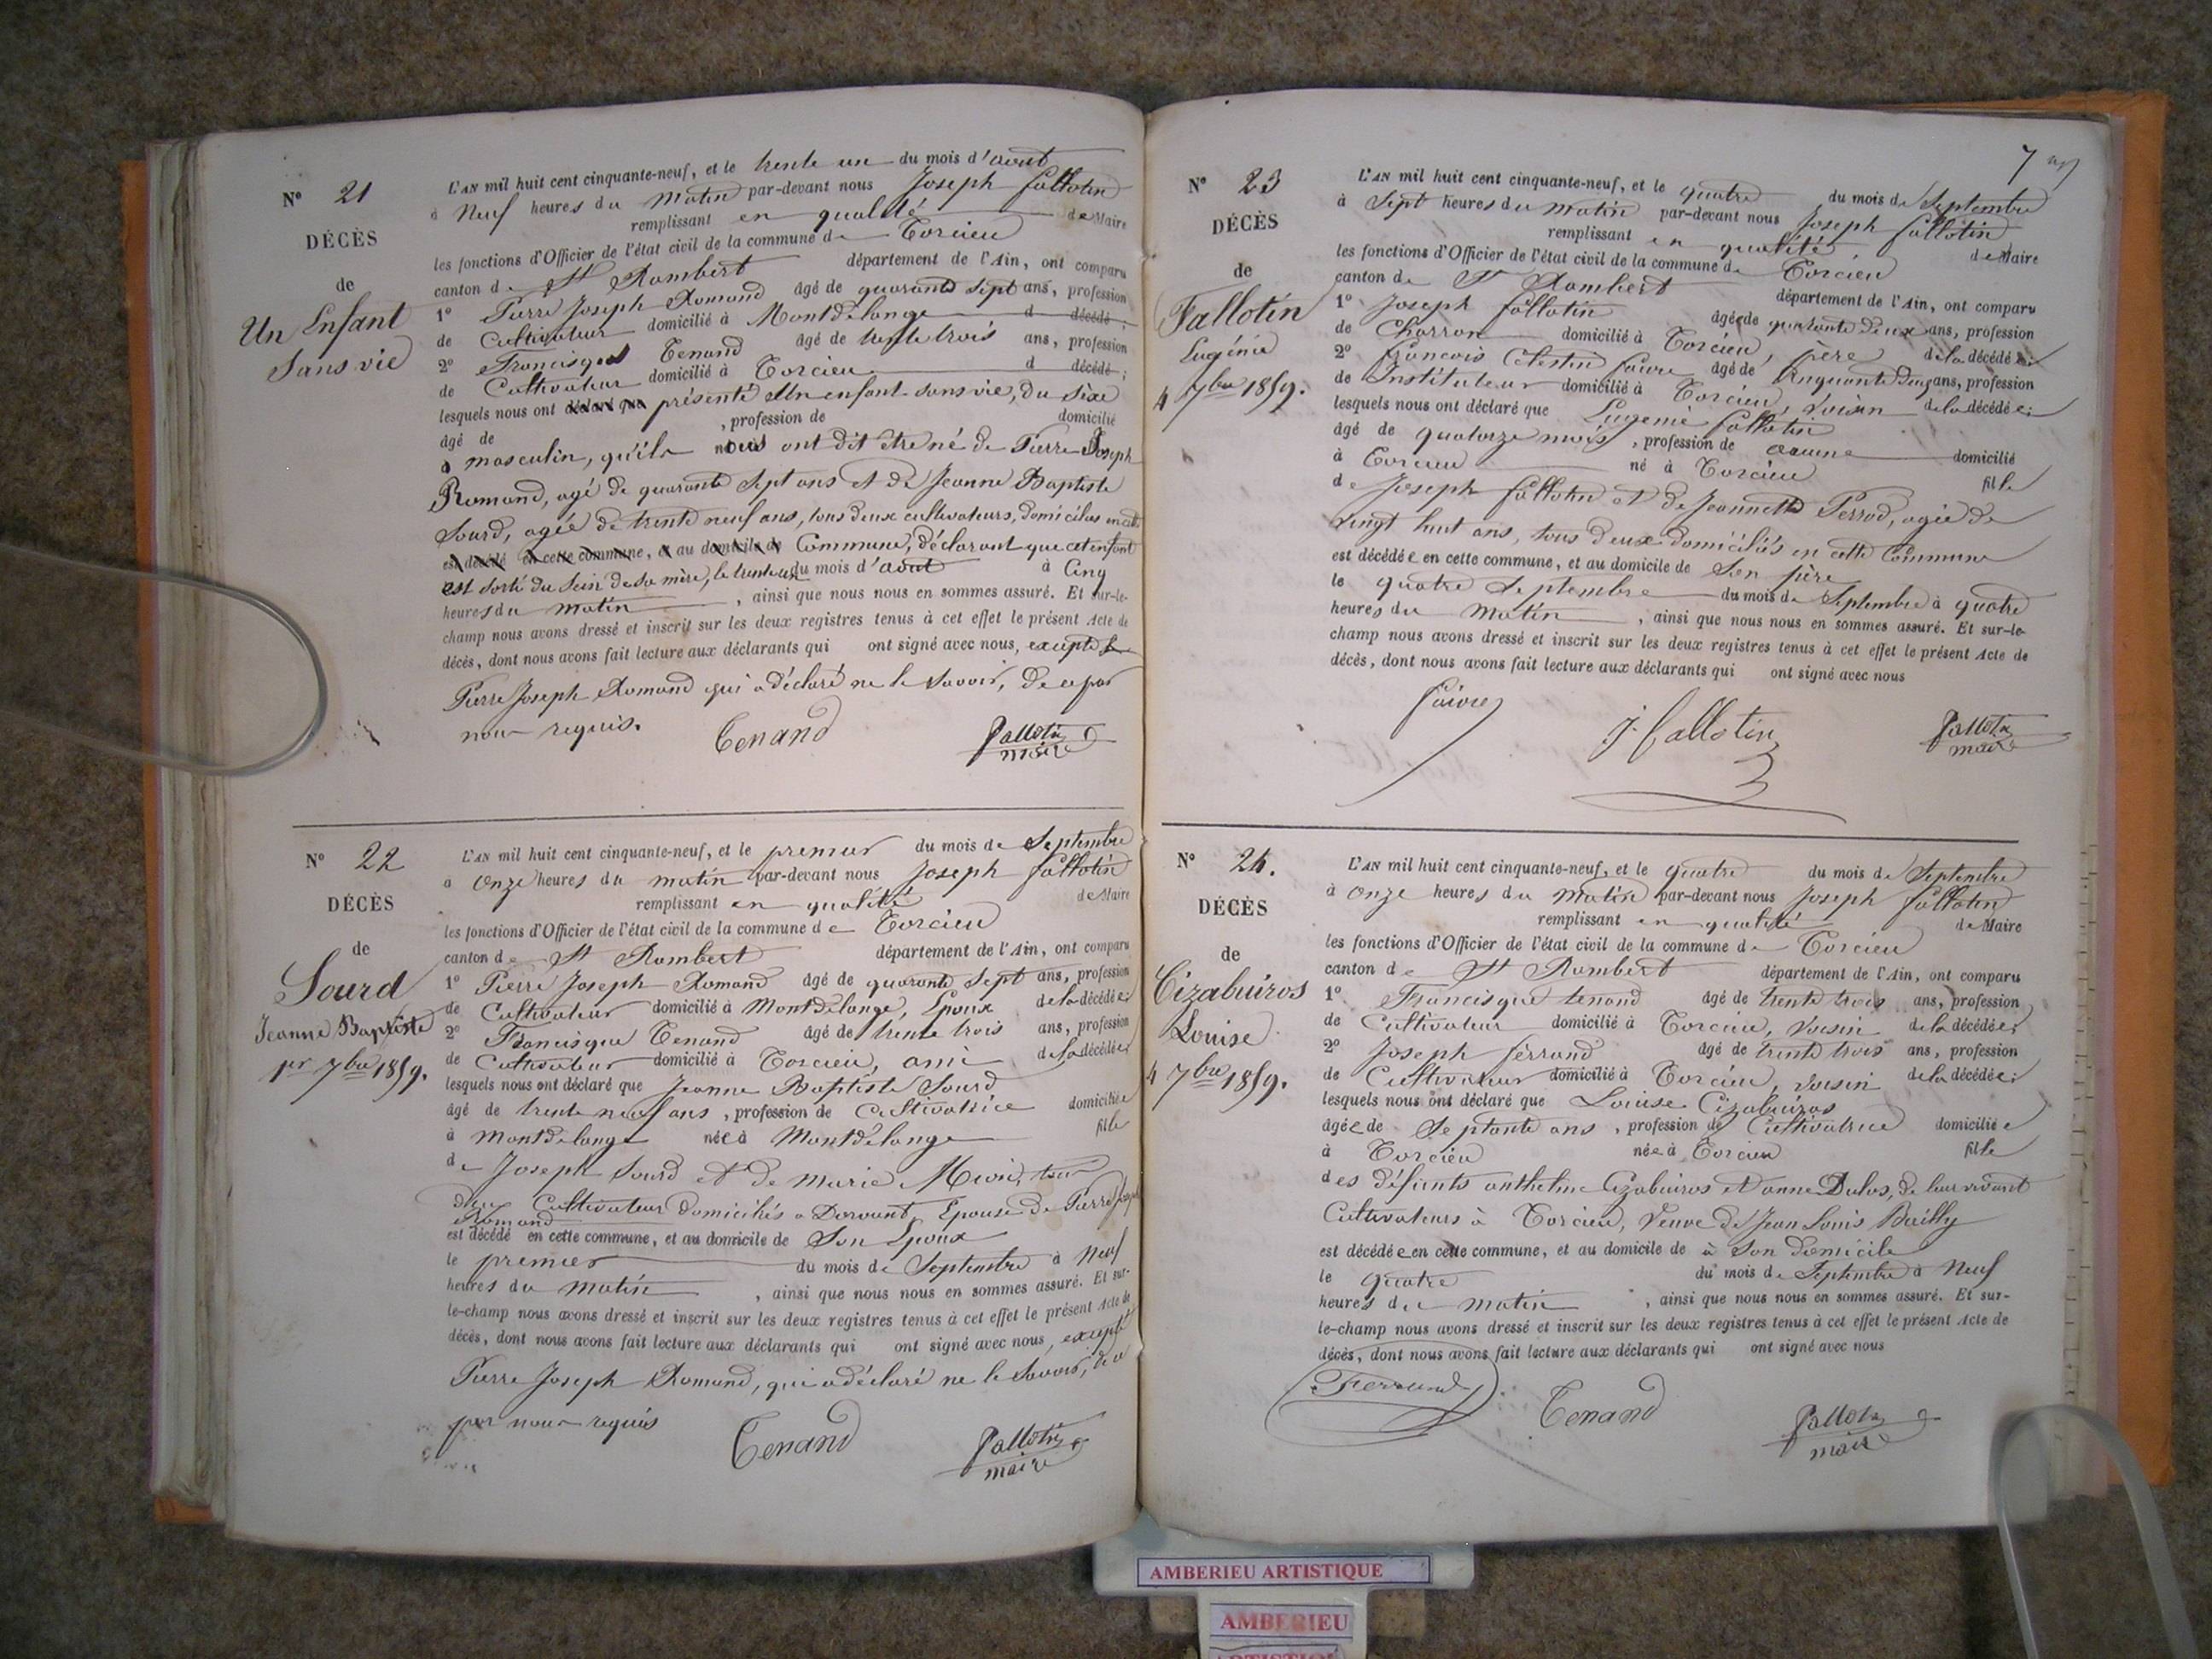 N° 21
DÉCÈS
de
Un Enfant
Sans vie
L'AN mil huit cent cinquante-neuf, et le trente un du mois d'aout
à Neuf heures du Matin par-devant nous Joseph fallotin
remplissant en qualité de Maire
les fonctions d'Officier de l'état civil de la commune de Torcieu
canton de St Rambert département de l'Ain, ont comparu
1° Pierre Joseph Romand âgé de quarante sept ans, profession
de Cultivateur domicilié à Montdelange d décédé ;
2° Francisque Tenand âgé de trente trois ans, profession
de Cultivateur domicilié à Torcieu d décédé ;
lesquels nous ont déclaré que présenté Un enfant sans vie, du sèxe
âgé de , profession de domicilié
à masculin, qu'ils nous ont dit être né de Pierre Joseph
Romand, agé de quarante sept ans et de Jeanne Baptiste
Sourd, agée de trente neuf ans, tous deux cultivateurs, domiciliés en cette
est décédé en cette commune, et au domicile de Commune, déclarant que cet enfant
est sorti du Sein de sa mère, le trente un du mois d'aout à Cinq
heures du matin , ainsi que nous nous en sommes assuré. Et sur-le-
champ nous avons dressé et inscrit sur les deux registres tenus à cet effet le présent Acte de
décès, dont nous avons fait lecture aux déclarants qui ont signé avec nous, excepté
Pierre Joseph Romand qui a déclaré ne le savoir, de ce par
nous requis.
Tenand
fallotin
maire
N° 22
DÉCÈS
de
Sourd
Jeanne Baptiste
1er 7bre 1859.
L'AN mil huit cent cinquante-neuf, et le premier du mois de Septembre
à Onze heures du matin par-devant nous Joseph fallotin
remplissant en qualité de Maire
les fonctions d'Officier de l'état civil de la commune de Torcieu
canton de St Rambert département de l'Ain, ont comparu
1° Pierre Joseph Romand âgé de quarante sept ans, profession
de Cultivateur domicilié à Montdelange, Epoux de la décédée;
2° Francisque Tenand âgé de trente trois ans, profession
de Cultivateur domicilié à Torcieu, ami de la décédée;
lesquels nous ont déclaré que Jeanne Baptiste Sourd
âgé de trente neuf ans , profession de Cultivatrice domiciliée
à Montdelange née à Montdélange fille
de Joseph Sourd et de Marie tous
deux Cultivateur domiciliés a Dorvant, Epouse de Pierre Joseph
Romand
est décédé en cette commune, et au domicile de Son Epoux
le premier du mois de Septembre à Neuf
heures du matin , ainsi que nous nous en sommes assuré. Et sur-
le-champ nous avons dressé et inscrit sur les deux registres tenus à cet effet le présent Acte de
décès, dont nous avons fait lecture aux déclarants qui ont signé avec nous, excepté
Pierre Joseph Romand, qui a déclaré ne le Savoir, de ce
par nous requis
Tenand
fallotin
maire
7
N° 23
DÉCÈS
de
Fallotin
Eugénie
4 7bre 1859.
L'AN mil huit cent cinquante-neuf, et le quatre du mois de Septembre
à Sept heures du matin par-devant nous Joseph fallotin
remplissant en qualité de Maire
les fonctions d'Officier de l'état civil de la commune de Torcieu
canton de St Rambert département de l'Ain, ont comparu
1° Joseph fallotin âgé de quarante deux ans, profession
de Charron domicilié à Torcieu, père de la décédée;
2° francois Celestin faivre âgé de Cinquante deux ans, profession
de Instituteur domicilié à Torcieu, voisin de la décédée;
lesquels nous ont déclaré que Eugenie fallotin
âgé de quatorze mois , profession de aucune domicilié
à Torcieu né à Torcieu fille
de Joseph fallotin et de Jeannette Perrod, agée de
vingt huit ans, tous deux domiciliés en cette Commune
est décédée en cette commune, et au domicile de Son père
le quatre Septembre du mois de Septembre à quatre
heures du Matin , ainsi que nous nous en sommes assuré. Et sur-le-
champ nous avons dressé et inscrit sur les deux registres tenus à cet effet le présent Acte de
décès, dont nous avons fait lecture aux déclarants qui ont signé avec nous
faivre
J. fallotin
fallotin
maire
N° 24.
DÉCÈS
de
Cizabuiros
Louise
4 7bre 1859.
L'AN mil huit cent cinquante-neuf, et le quatre du mois de Septembre
à Onze heures du Matin par-devant nous Joseph fallotin
remplissant en qualité de Maire
les fonctions d'Officier de l'état civil de la commune de Torcieu
canton de St Rambert département de l'Ain, ont comparu
1° Francisque tenand âgé de trente trois ans, profession
de Cultivateur domicilié à Torcieu, voisin de la décédée;
2° Joseph ferrand âgé de trente trois ans, profession
de Cultivateur domicilié à Torcieu, voisin de la décédée;
lesquels nous ont déclaré que Louise Cizabuiros
âgée de Septante ans , profession de Cultivatrice domiciliée
à Torcieu née à Torcieu fille
des défunts anthelme Cizabuiros et anne Dulos, de leur vivant
Cultivateurs à Torcieu, Veuve de Jean Louis Bailly
est décédée en cette commune, et au domicile de à Son domicile
le quatre du mois de Septembre à Neuf
heures du matin , ainsi que nous nous en sommes assuré. Et sur-
le-champ nous avons dressé et inscrit sur les deux registres tenus à cet effet le présent Acte de
décès, dont nous avons fait lecture aux déclarants qui ont signé avec nous
Ferrand
Tenand
fallotin
maire
AMBERIEU ARTISTIQUE
AMBERIEU
ARTISTIQUE